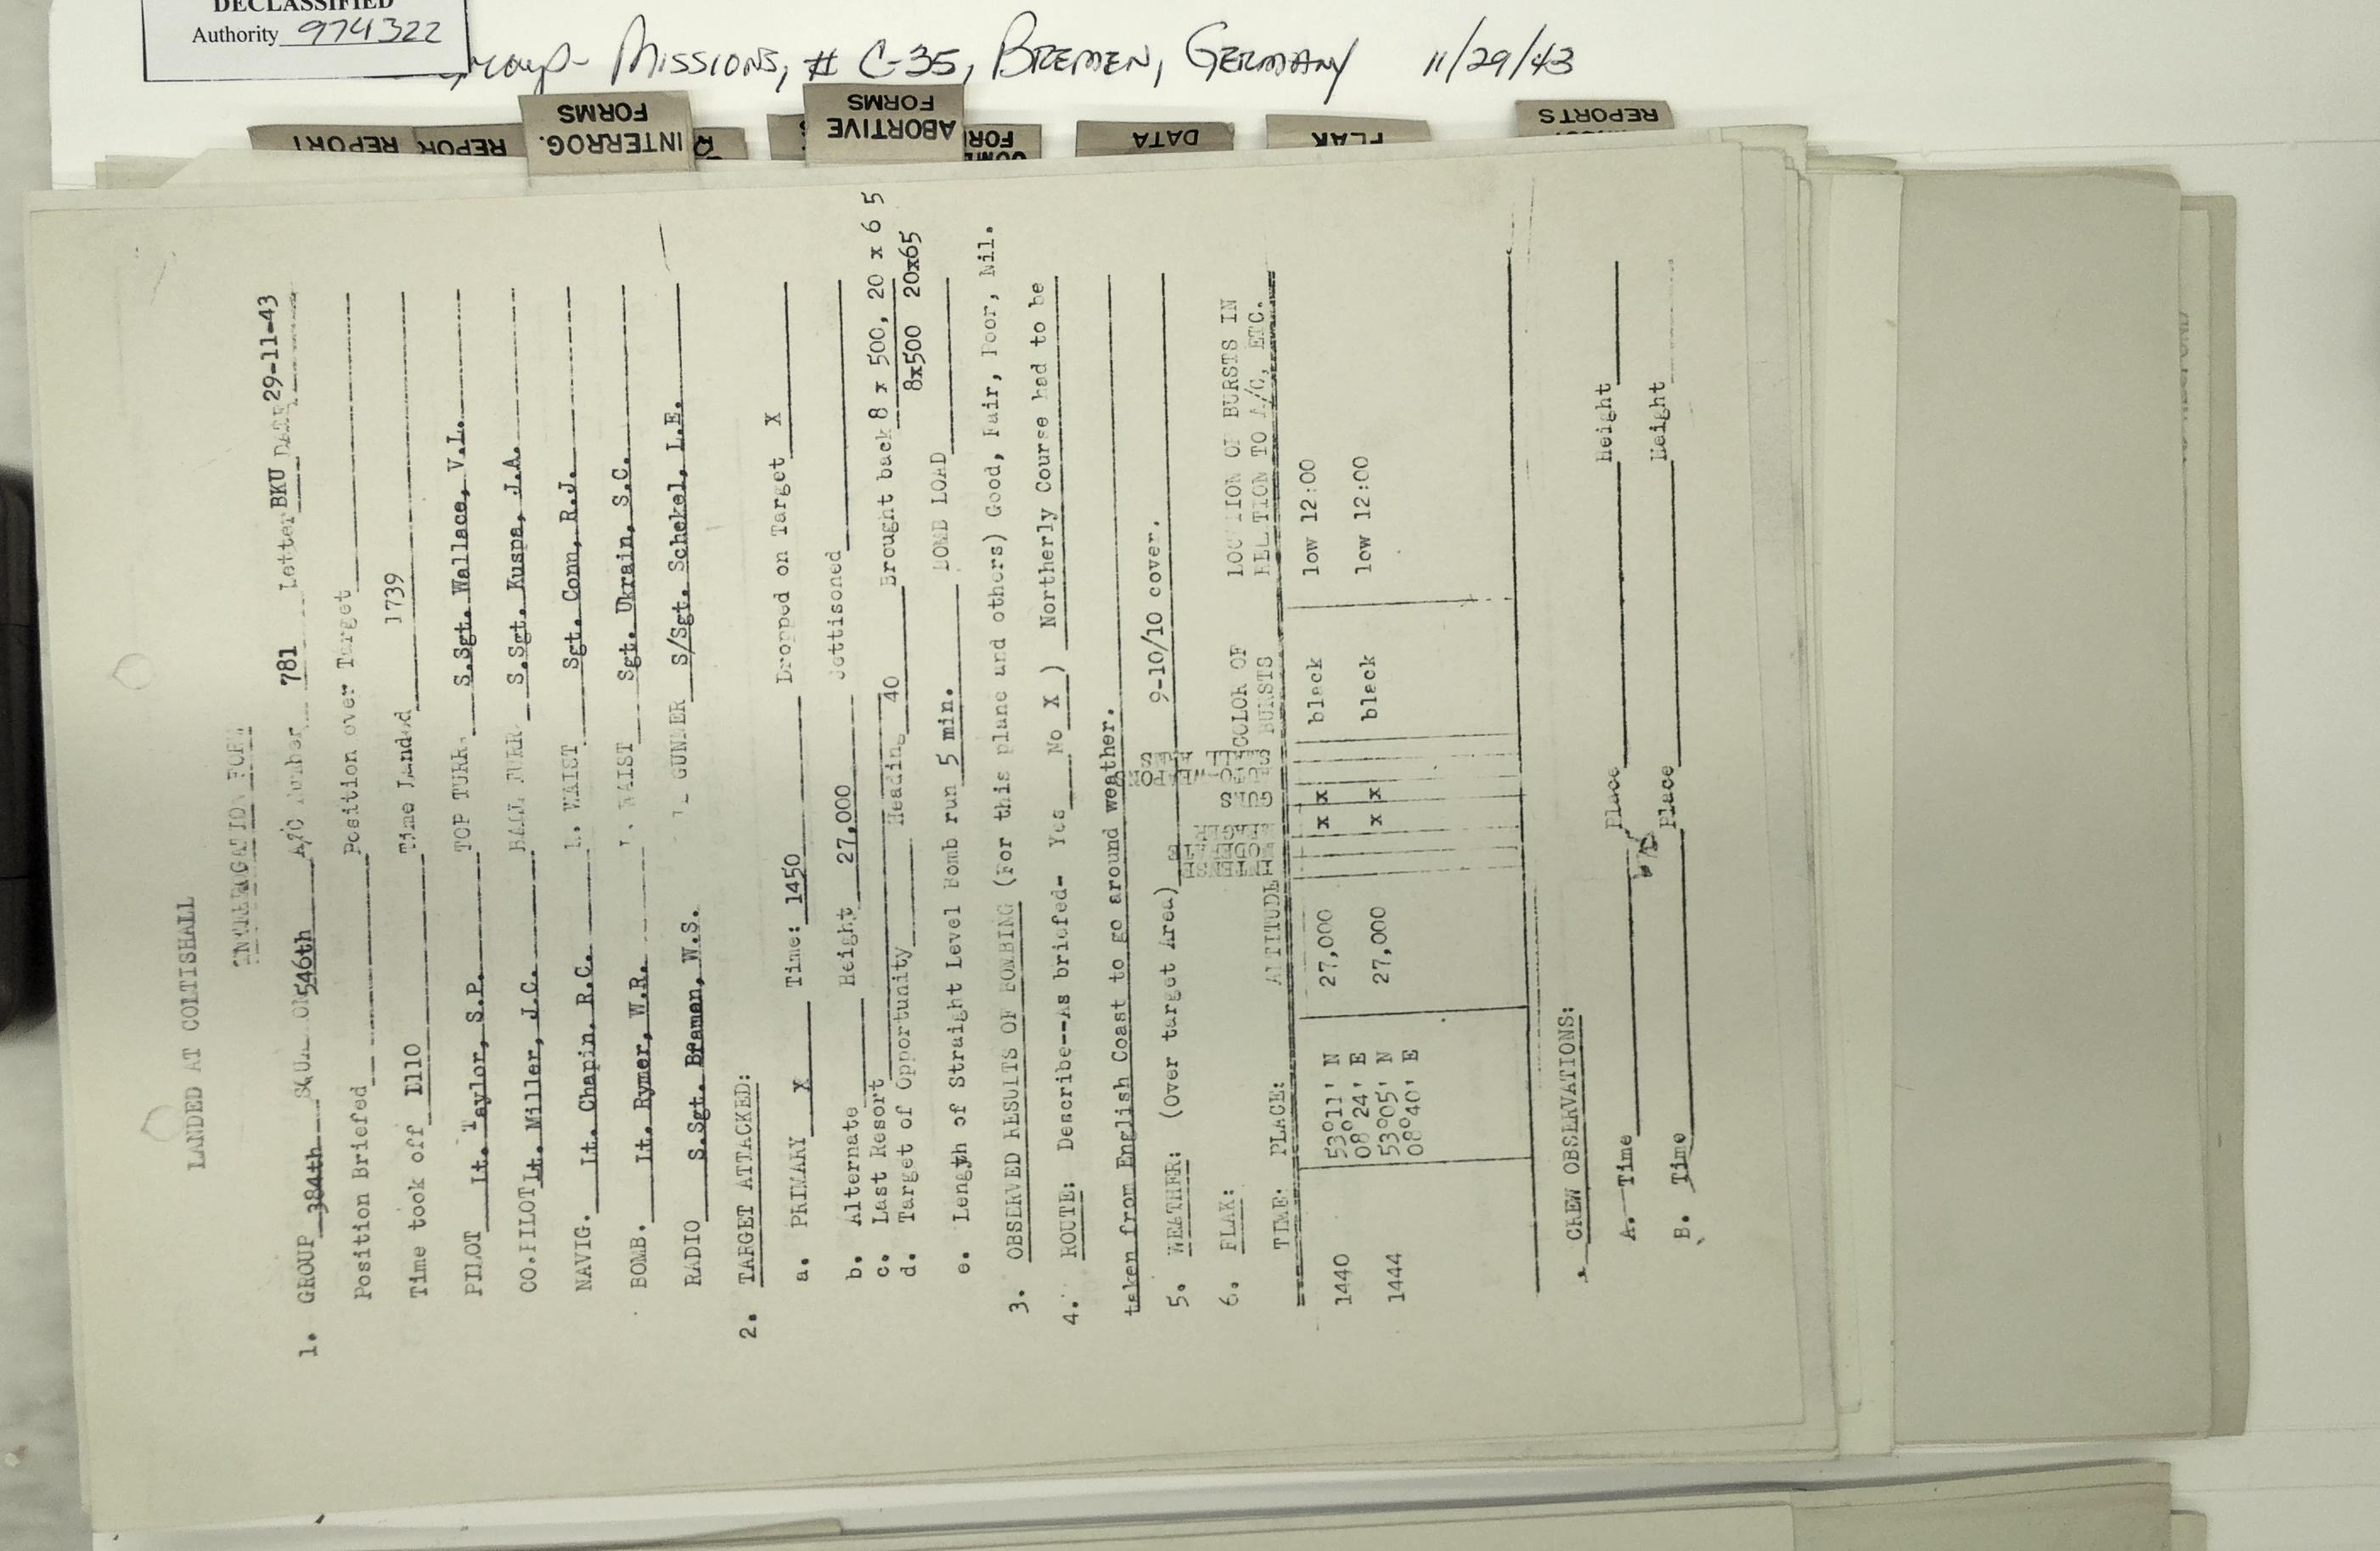 DECLASSIFIED
Authority 974322
Group- Missions, # C-35, Bremen, Germany 11/29/43
REPORT
REPOR
INTERROG.
FORMS
ABORTIVE
FORMS
DATA
FLAK
REPORTS
LANDED AT COLTISHALL
INTERROGATION FORM
1. GROUP 384th SQUADRON 546th A/C Number 781 Letter BKU DATE 29-11-43
Position Briefed Position over Target
Time took off 1110 Time Landed 1739
PILOT Lt. Taylor, S.P. TOP TURR. S.Sgt. Wallace, V.L.
CO.PILOT Lt. Miller, J.C. BALL TURR. S.Sgt. Kuspa, J.A.
NAVIG. Lt. Chapin, R.C. L. WAIST Sgt. Conn, R.J.
BOMB. Lt. Rymer, W.R. WAIST Sgt. Ukrain, S.C.
RADIO S.Sgt. Braman, W.S. GUNNER S/Sgt. Schekel, L.E.
2. TARGET ATTACKED:
a. PRIMARY X Time: 1450 Dropped on Target X
b. Alternate Height 27,000 Jettisoned
c. Last Resort
d. Target of Opportunity Heading 40 Brought back 8 x 500, 20 x 6 5
8x500 20x65
e. Length of Straight Level Bomb run 5 min. BOMB LOAD
3. OBSERVED RESULTS OF BOMBING (For this plane and others) Good, Fair, Poor, Nil.
4. ROUTE: Describe--As briefed- Yes No X ) Northerly Course had to be
taken from English Coast to go around weather.
5. WEATHER: (Over target Area) 9-10/10 cover.
6. FLAK: COLOR OF LOCATION OF BURSTS IN
TIME. PLACE: ALTITUDE BURSTS RELATION TO A/C, ETC.
1440 53°11' N 27,000 x x black low 12:00
08°24' E
1444 53°05' N 27,000 x x black low 12:00
08°40' E
CREW OBSERVATIONS:
A. Time Place Height
B. Time Place Height